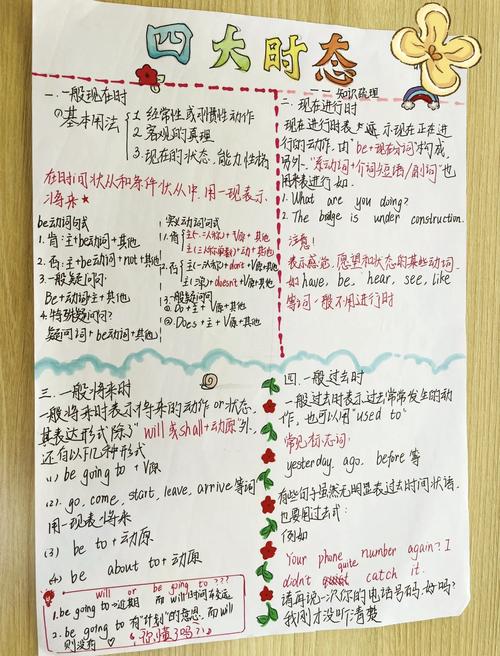 四大时态
知识疏理
一.一般现在时
①基本用法
1.经常性或习惯性动作
2.客观的真理
3.现在的状态,能力性格
在时间状从和条件状从中,用一现表示
将来★
be动词句式
1.肯:主+be动词+其他
2.否:主+be动词+not+其他
3.一般疑问问:
Be+动词主+其他
4.特殊疑问问?
疑问词+be动词+其他
实义动词问句式
1.肯
2.否
3.一般疑问问
①.Do+主+V原+其他
②.Does+主+V原+其他
二.现在进行时
现在进行时表示现在正在进
行的动作.由"be+现在分词"构成
另外."系动词+介词短语/副词"也
用来表进行如.
1.What are you doing?
2.The badge is under construction.
注意!
表示感觉,愿望和状态的某些动词.
如have, be, hear, see, like
等词一般不用进行时
三.一般将来时
一般将来时表示将来的动作or状态,
其表达形式除了"will或shall+动原"外.
还有以下几种形式
(1) be going to +V原
(2). go, come, start, leave, arrive等词
用一现表将来
(3) be to+动原
(4) be about to+动原
will or be going to ???
1.be going to→近期 而will时间较远
2.be going to 有"计划"的意思,而will
则没有
"你懂了吗?"
四.一般过去时
一般过去时表示过去常常发生的动
作,也可以用"used to"
常见标志词:
yesterday, ago, before等
有些句子虽然无明显表过去时间状语.
也要用过去式:
例如
Your phone number again? I
didn't quite catch it.
请再说一次你的电话号码,好吗?
我刚才没听清楚